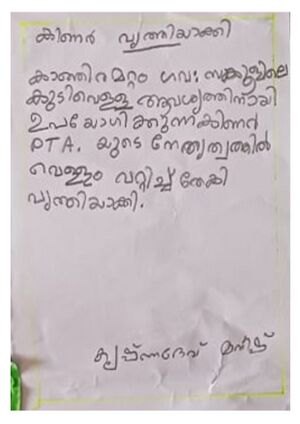 കിണർ വൃത്തിയാക്കി
കാഞ്ഞിരമറ്റം ഗവ: സ്ക്കൂളിലെ
കുടിവെള്ള ആവശ്യത്തിനായി
ഉപയോഗിക്കുന്ന കിണർ
PTA. യുടെ നേതൃത്വത്തിൽ
വെള്ളം വറ്റിച്ച് തേകി
വൃത്തിയാക്കി.
കൃഷ്ണദേവ്